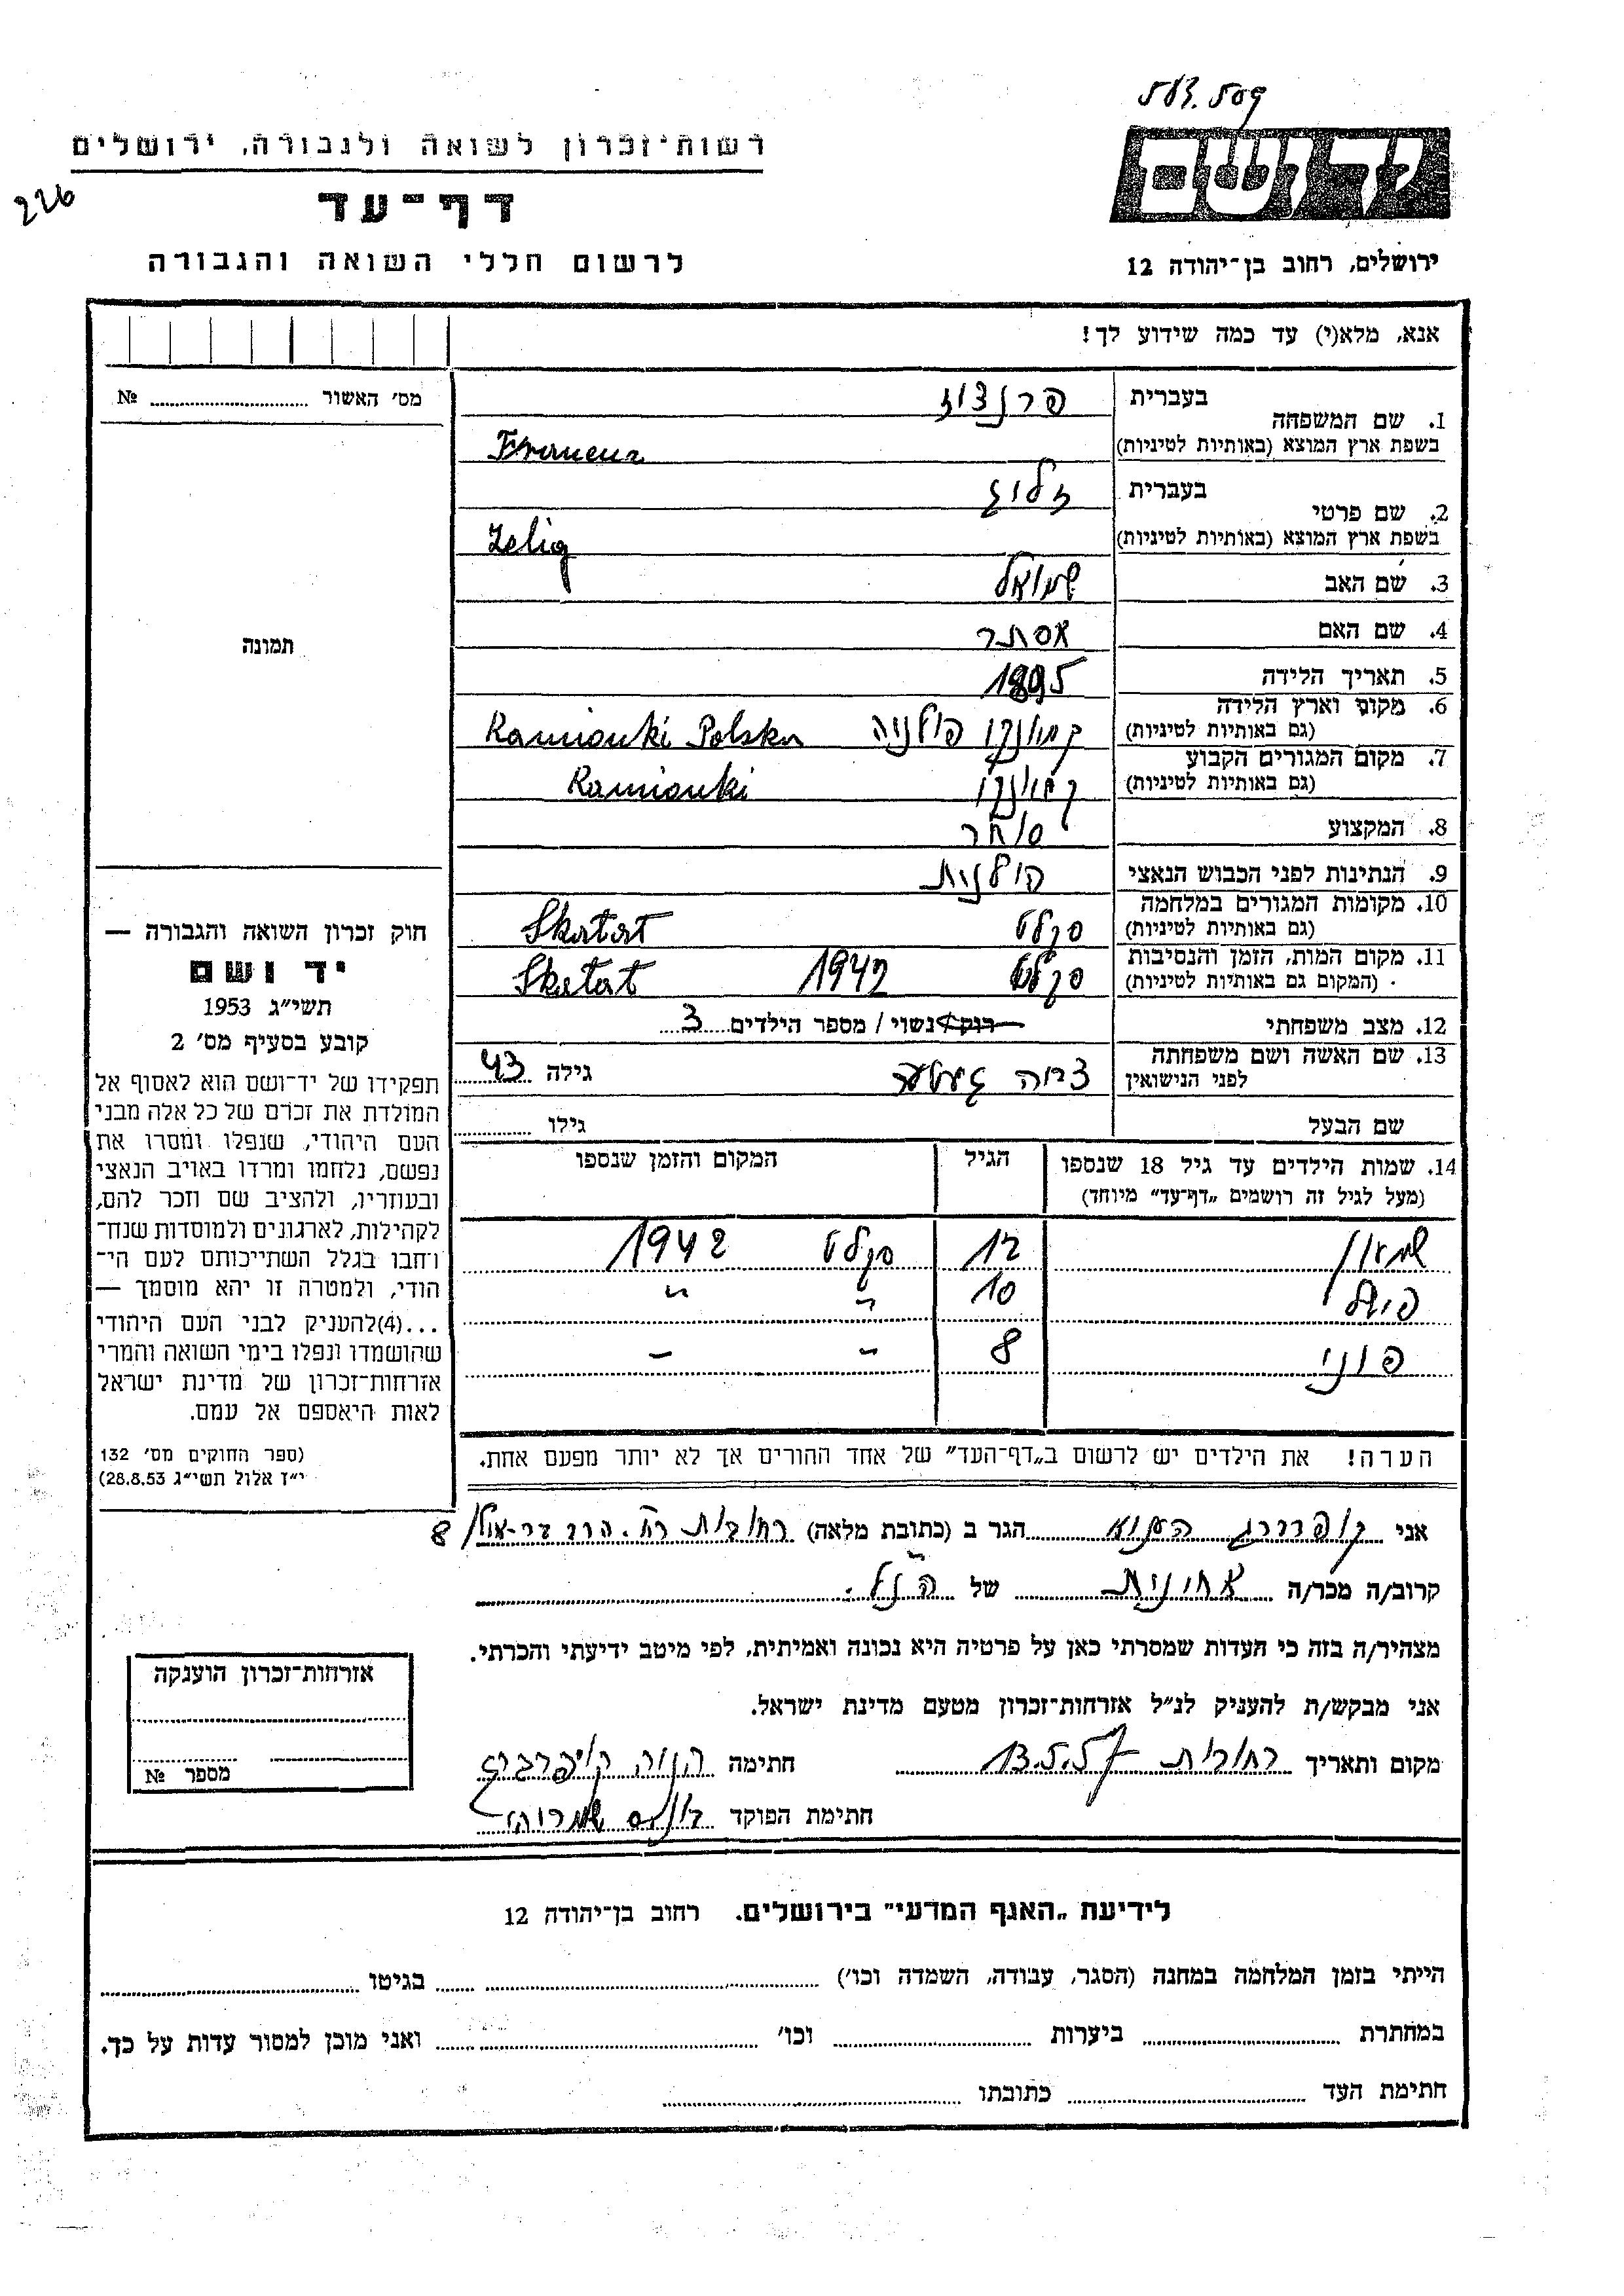 573.509
רשות־זכרון לשואה ולגבורה, ירושלים
226
דף־עד
לרשום חללי השואה והגבורה
ידושם
ירושלים, רחוב בן־יהודה 12
אנא, מלא(י) עד כמה שידוע לך!
מס׳ האשור № 
1. שם המשפחה
בעברית פרנצוז
בשפת ארץ המוצא (באותיות לטיניות) Francuz
2. שם פרטי
בעברית זליג
בשפת ארץ המוצא (באותיות לטיניות) Zelig
3. שם האב שמואל
4. שם האם אסתר
5. תאריך הלידה 1895
6. מקום וארץ הלידה קמיונקי פולניה Kamionki Polska
(גם באותיות לטיניות)
7. מקום המגורים הקבוע קמיונקי Kamionki
(גם באותיות לטיניות)
8. המקצוע סוחר
9. הנתינות לפני הכבוש הנאצי פולנית
10. מקומות המגורים במלחמה סקלט Skatat
(גם באותיות לטיניות)
11. מקום המות, הזמן והנסיבות סקלט 1942 Skatat
(המקום גם באותיות לטיניות)
12. מצב משפחתי רוק/נשוי / מספר הילדים 3
13. שם האשה ושם משפחתה
לפני הנישואין צרוה גילה 43
שם הבעל גילו
14. שמות הילדים עד גיל 18 שנספו הגיל המקום והזמן שנספו
(מעל לגיל זה רושמים „דף־עד” מיוחד)
שמעון 12 סקלט 1942
10 " "
פוני 8 " "
הערה! את הילדים יש לרשום ב„דף־העד” של אחד ההורים אך לא יותר מפעם אחת.
תמונה
חוק זכרון השואה והגבורה —
יד ושם
תשי״ג 1953
קובע בסעיף מס׳ 2
תפקידו של יד־ושם הוא לאסוף אל
המולדת את זכרם של כל אלה מבני
העם היהודי, שנפלו ומסרו את
נפשם, נלחמו ומרדו באויב הנאצי
ובעוזריו, ולהציב שם וזכר להם,
לקהילות, לארגונים ולמוסדות שנח־
רבו בגלל השתייכותם לעם הי־
הודי, ולמטרה זו יהא מוסמך —
...(4) להעניק לבני העם היהודי
שהושמדו ונפלו בימי השואה והמרי
אזרחות־זכרון של מדינת ישראל
לאות היאספם אל עמם.
(ספר החוקים מס׳ 132
י״ז אלול תשי״ג 28.8.53)
אני קופרברג הענא הגר ב (כתובת מלאה) רחובות רח. הרב בר־אילן 8
קרוב/ה מכר/ה אחינית של הנ״ל.
מצהיר/ה בזה כי העדות שמסרתי כאן על פרטיה היא נכונה ואמיתית, לפי מיטב ידיעתי והכרתי.
אני מבקש/ת להעניק לנ״ל אזרחות־זכרון מטעם מדינת ישראל.
מקום ותאריך רחובות 13.5.57 חתימה הנוה קופרברג
חתימת הפוקד
אזרחות־זכרון הוענקה
מספר №
לידיעת „האגף המדעי” בירושלים. רחוב בן־יהודה 12
הייתי בזמן המלחמה במחנה (הסגר, עבודה, השמדה וכו׳) בגיטו
במחתרת ביערות וכו׳ ואני מוכן למסור עדות על כך.
חתימת העד כתובתו